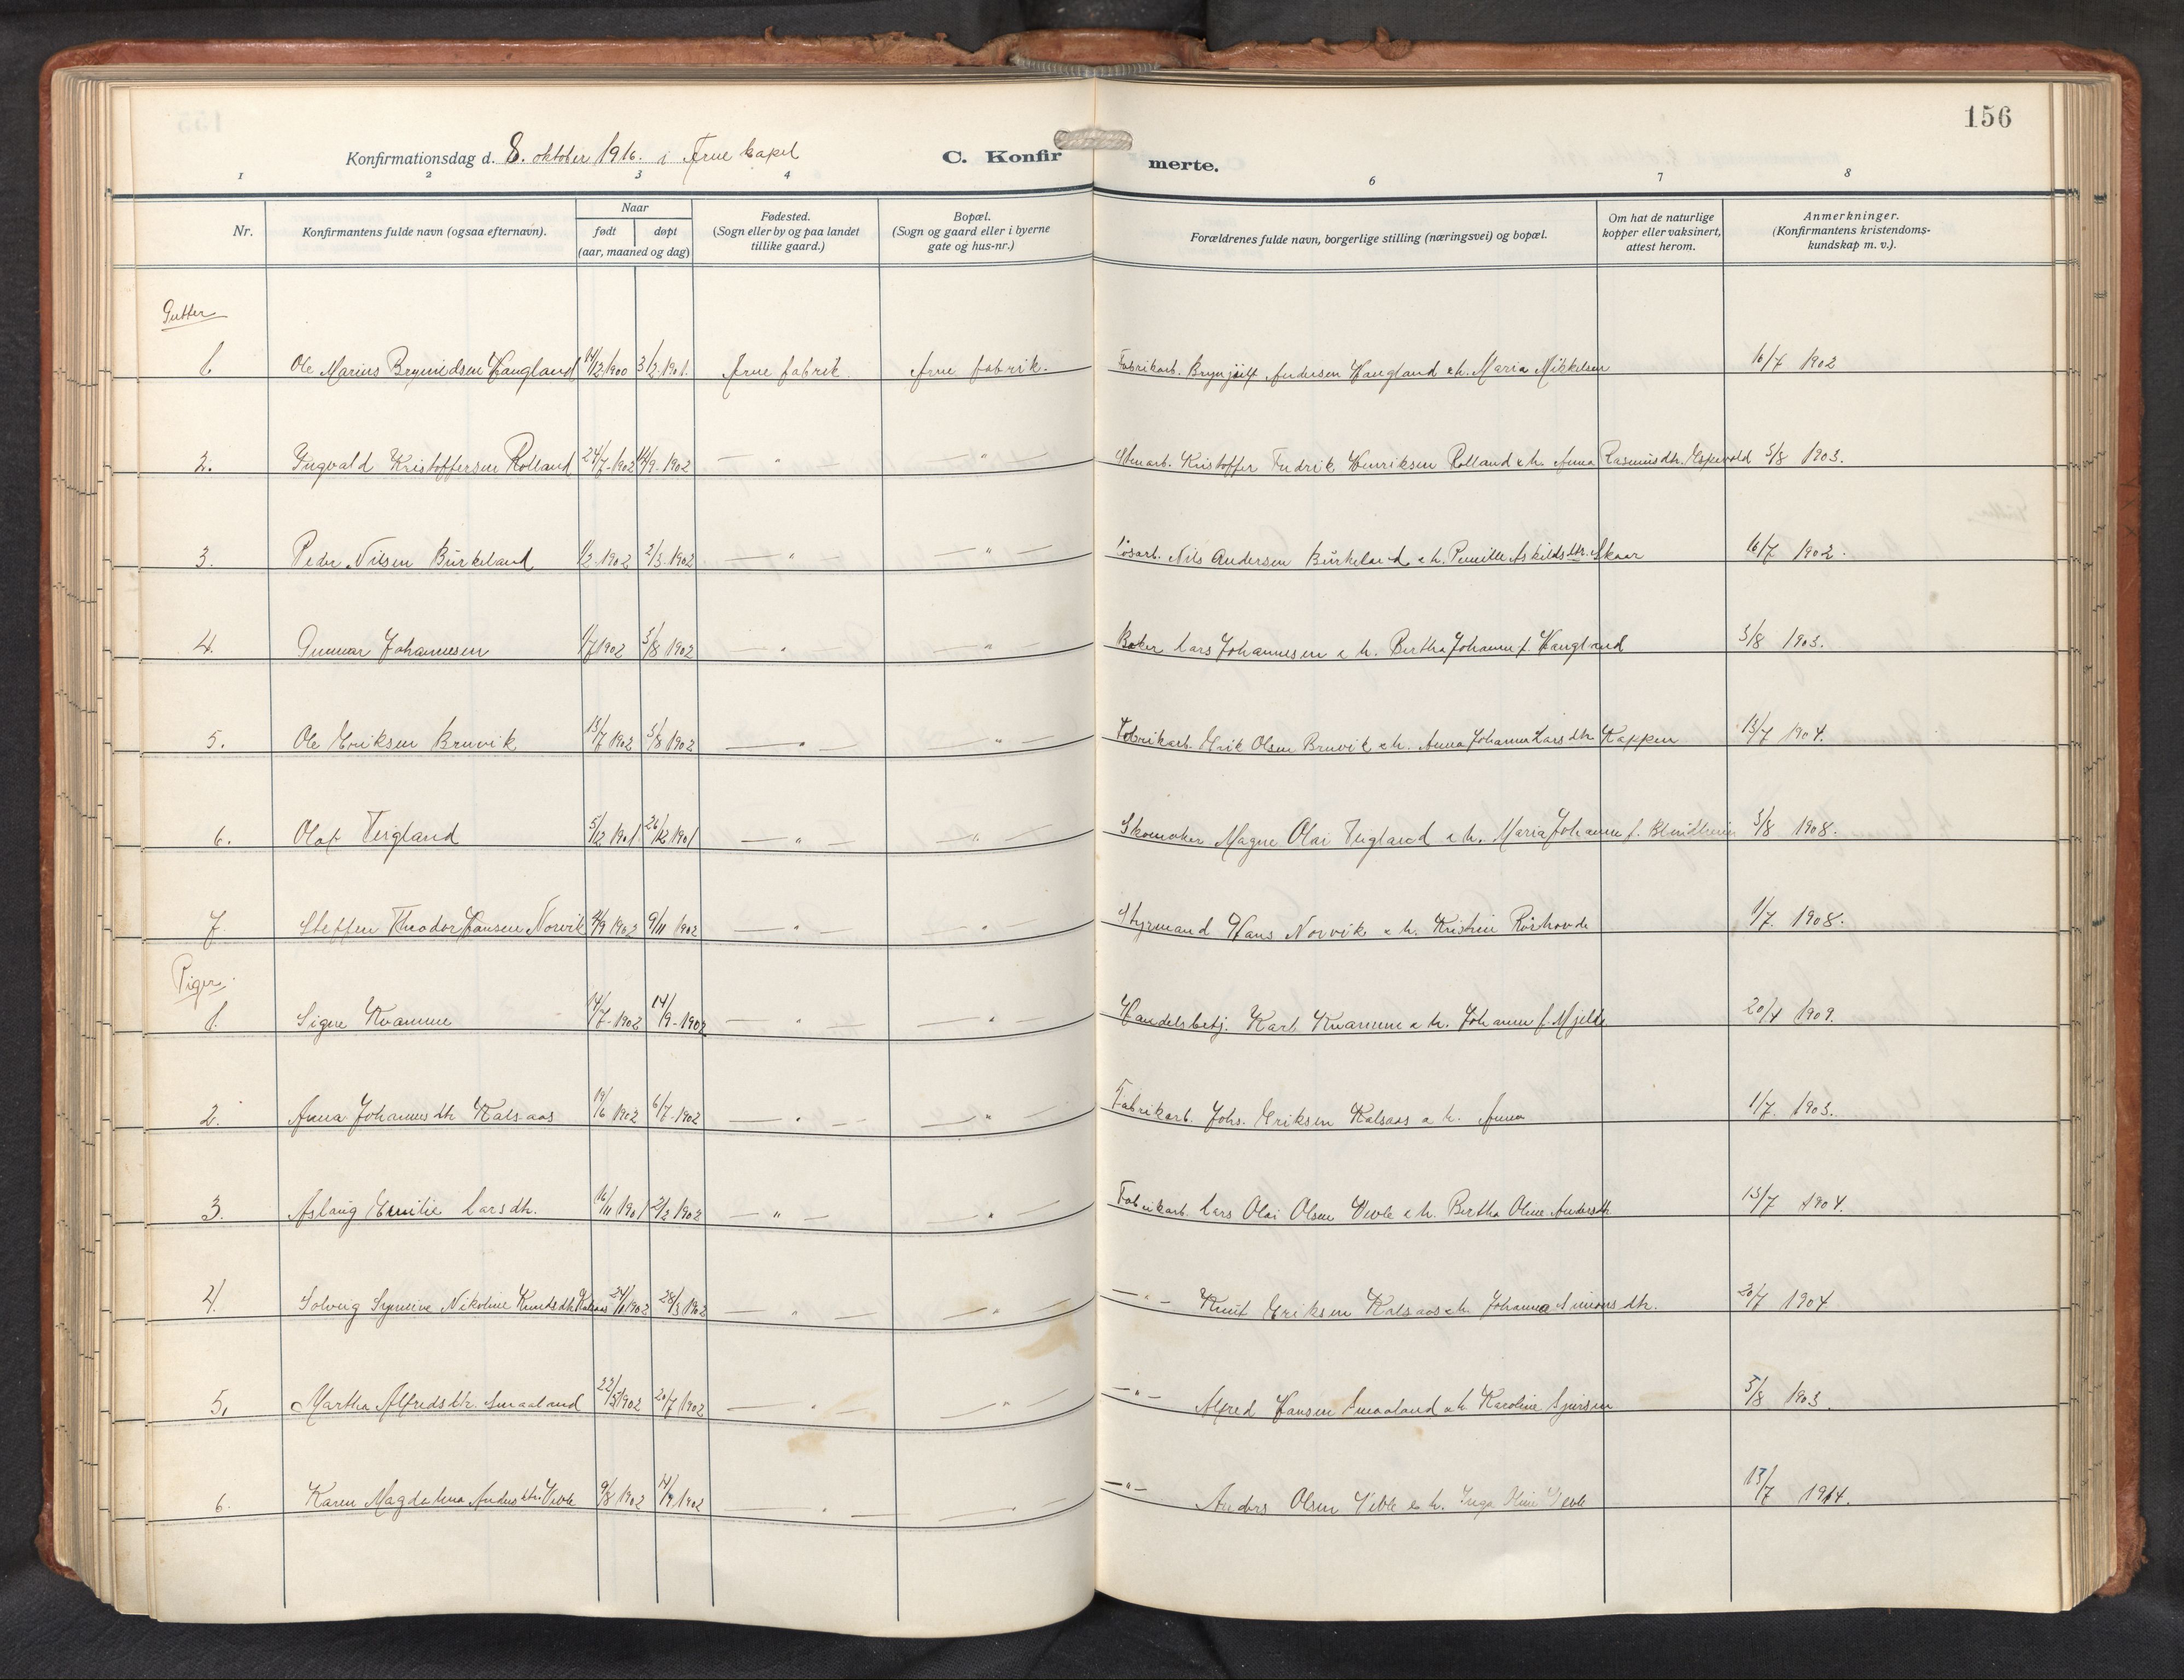 156
Konfirmationsdag d. 8. oktober 1916. i Arne kapel
C. Konfirmerte.
1 2 3 4 6 7 8
Nr. Konfirmantens fulde navn (ogsaa efternavn). Naar født døpt (aar, maaned og dag) Fødested. (Sogn eller by og paa landet tillike gaard.) Bopæl. (Sogn og gaard eller i byerne gate og hus-nr.) Forældrenes fulde navn, borgerlige stilling (næringsvei) og bopæl. Om hat de naturlige kopper eller vaksinert, attest herom. Anmerkninger. (Konfirmantens kristendoms-kundskap m. v.).
Gutter
1. Ole Marius Haugland 14/12 1900 3/2 1901. Arne fabrik. Arne fabrik. Fabrikarb. Brynjulf Andersen Haugland & h. Maria Mikkelsen 16/7 1902
2. Ingvald Kristoffersen Rolland 24/7 1902 14/9 1902 — " — — " — Kristoffer Fredrik Henriksen Rolland & h. Anna Rasmusdtr. Espevold 5/8 1903.
3. Peder Nilsen Burkeland 1/2 1902 2/3 1902 — " — — " — Nils Andersen Burkeland & h. Pernille Askildsdtr. Skaar 16/7 1902.
4. Gunnar Johannesen 1/7 1902 3/8 1902 — " — — " — Baker Lars Johannesen & h. Bertha Johanne f. Haugland 5/8 1903.
5. Ole Eriksen Bruvik 13/7 1902 3/8 1902 — " — — " — Fabrikarb. Erik Olsen Bruvik & h. Anna Johanne Larsdtr. Kappen 13/7 1904.
6. Olaf Teigland 5/12 1901 26/12 1901 — " — — " — Skomaker Magne Olai Teigland & h. Maria Johanne f. Blindheim 5/8 1908.
7. Steffen Theodor Hansen Norvik 4/9 1902 9/11 1902 — " — — " — Styrmand Hans Norvik & h. Kristine 1/7. 1908.
Piger.
1. Signe Kvamme 14/7 1902 14/9 1902 — " — — " — Handelsbetj. Karl Kvamme & h. Johanne f. Mjelde 20/4 1909.
2. Anna Johannesdtr. Kalsaas 19/6 1902 6/7 1902 — " — — " — Fabrikarb. Johs. Eriksen Kalsaas & h. Anna 1/7. 1903.
3. Aslaug Emilie Larsdtr. 16/11 1901 2/2 1902 — " — — " — Fabrikarb. Lars Olai Olsen Veole & h. Bertha Oline Andersdtr. 13/7 1904.
4. Solveig Nikoline Knudsdtr. Kalsaas 24/1 1902 28/3 1902 — " — — " — — " — Knut Eriksen Kalsaas & h. Johanna Simonsdtr. 20/7 1904
5. Martha Alfredsdtr. Smaaland 22/5 1902 20/7 1902 — " — — " — — " — Alfred Hansen Smaaland & h. Karoline Sjursen 5/8 1903.
6. Karen Magdalena Andersdtr. Veole 9/8 1902 14/9 1902 — " — — " — — " — Anders Olsen Veole & h. Inga Veole 13/7 1914.